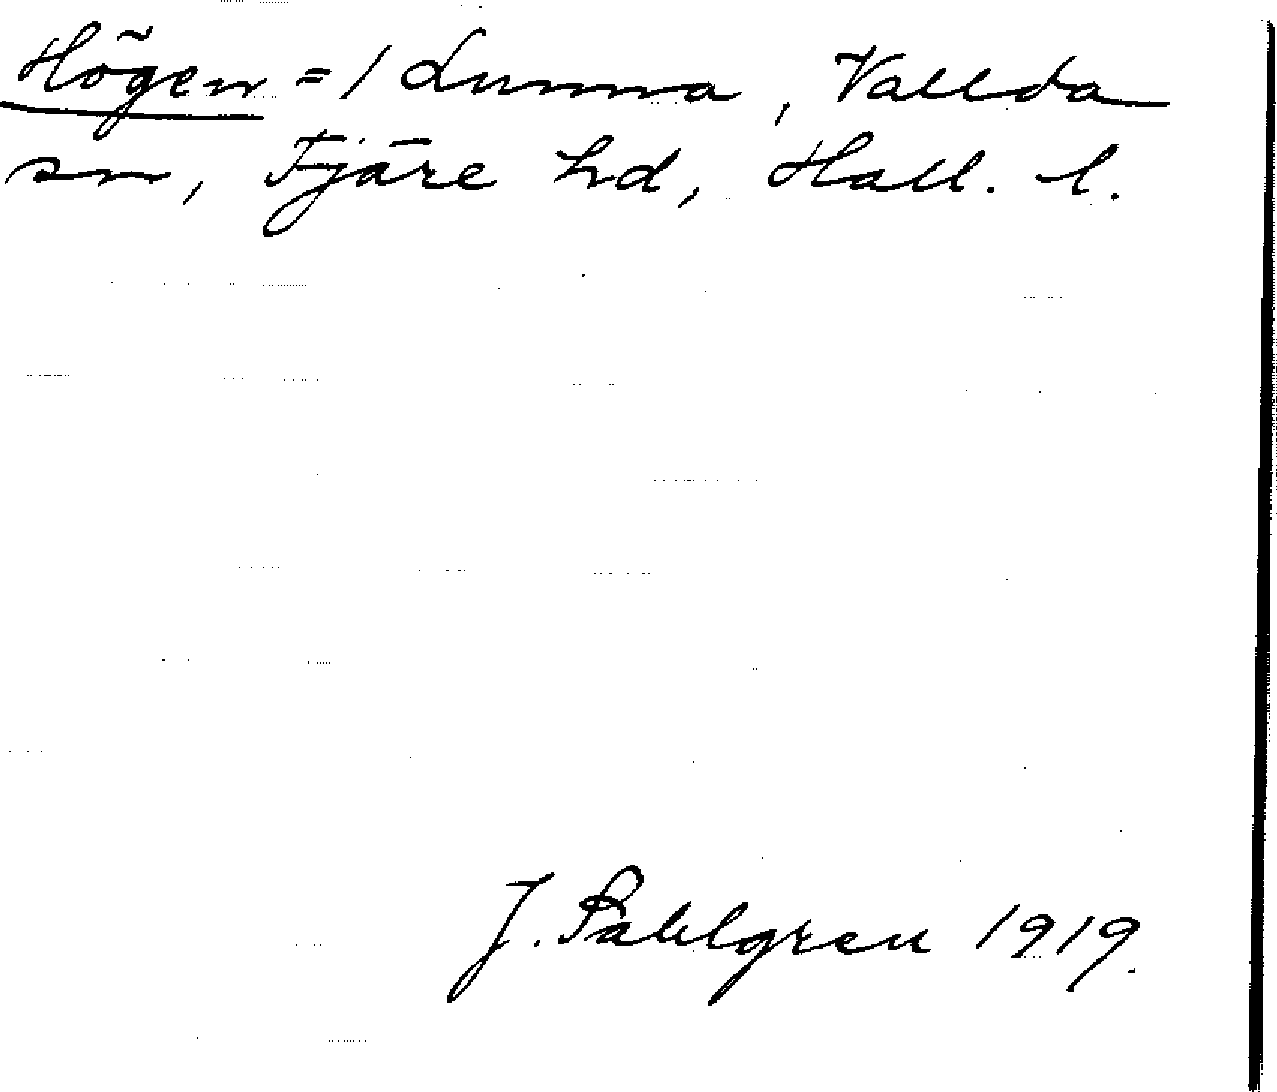 Högen = 1 Lunna, Vallda
sn, Fjäre hd, Hall. l.
J. Sahlgren 1919.